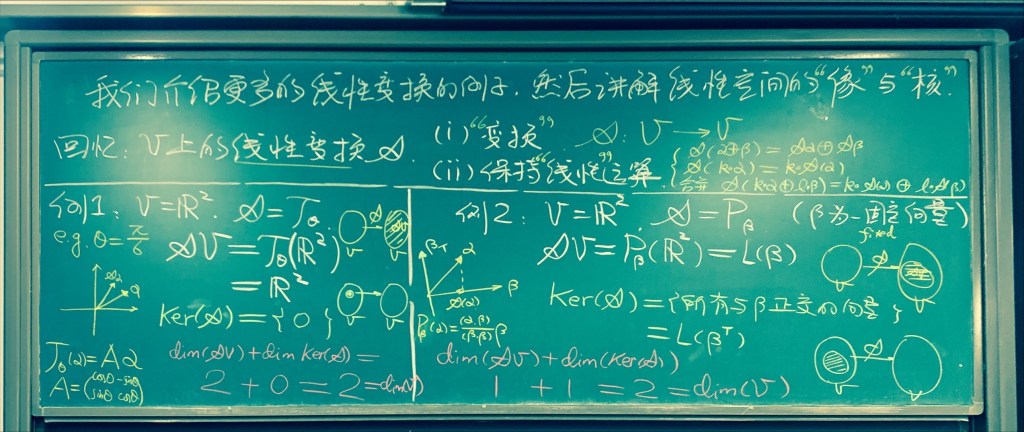 我们介绍更多的线性变换的例子.然后讲解线性空间的“像”与“核”.
回忆: V上的线性变换 𝒜.
(i)“变换” 𝒜: V → V
(ii)保持“线性”运算
{ 𝒜(α⊕β) = 𝒜α ⊕ 𝒜β
𝒜(k∘α) = k∘𝒜(α)
合并 𝒜(k∘α⊕l∘β) = k∘𝒜(α) ⊕ l∘𝒜(β)
例1: V=ℝ². 𝒜=T_θ.
e.g. θ=π/6
𝒜V = T_θ(ℝ²)
= ℝ²
𝒜
V
𝒜α
α
Ker(𝒜) = { 0 }
V
T_θ(α) = Aα
A = (cosθ -sinθ
sinθ cosθ)
dim(𝒜V) + dim Ker(𝒜) =
2 + 0 = 2 = dim(V)
例2: V=ℝ². 𝒜=P_β (β为一固定向量)
fixed
𝒜V = P_β(ℝ²) = L(β)
β^T
α
β
𝒜(α)
P_β(α) = (α,β)/(β,β) β
𝒜
V
Ker(𝒜) = {所有与β正交的向量}
= L(β^T)
𝒜
V
dim(𝒜V) + dim(Ker(𝒜))
1 + 1 = 2 = dim(V)